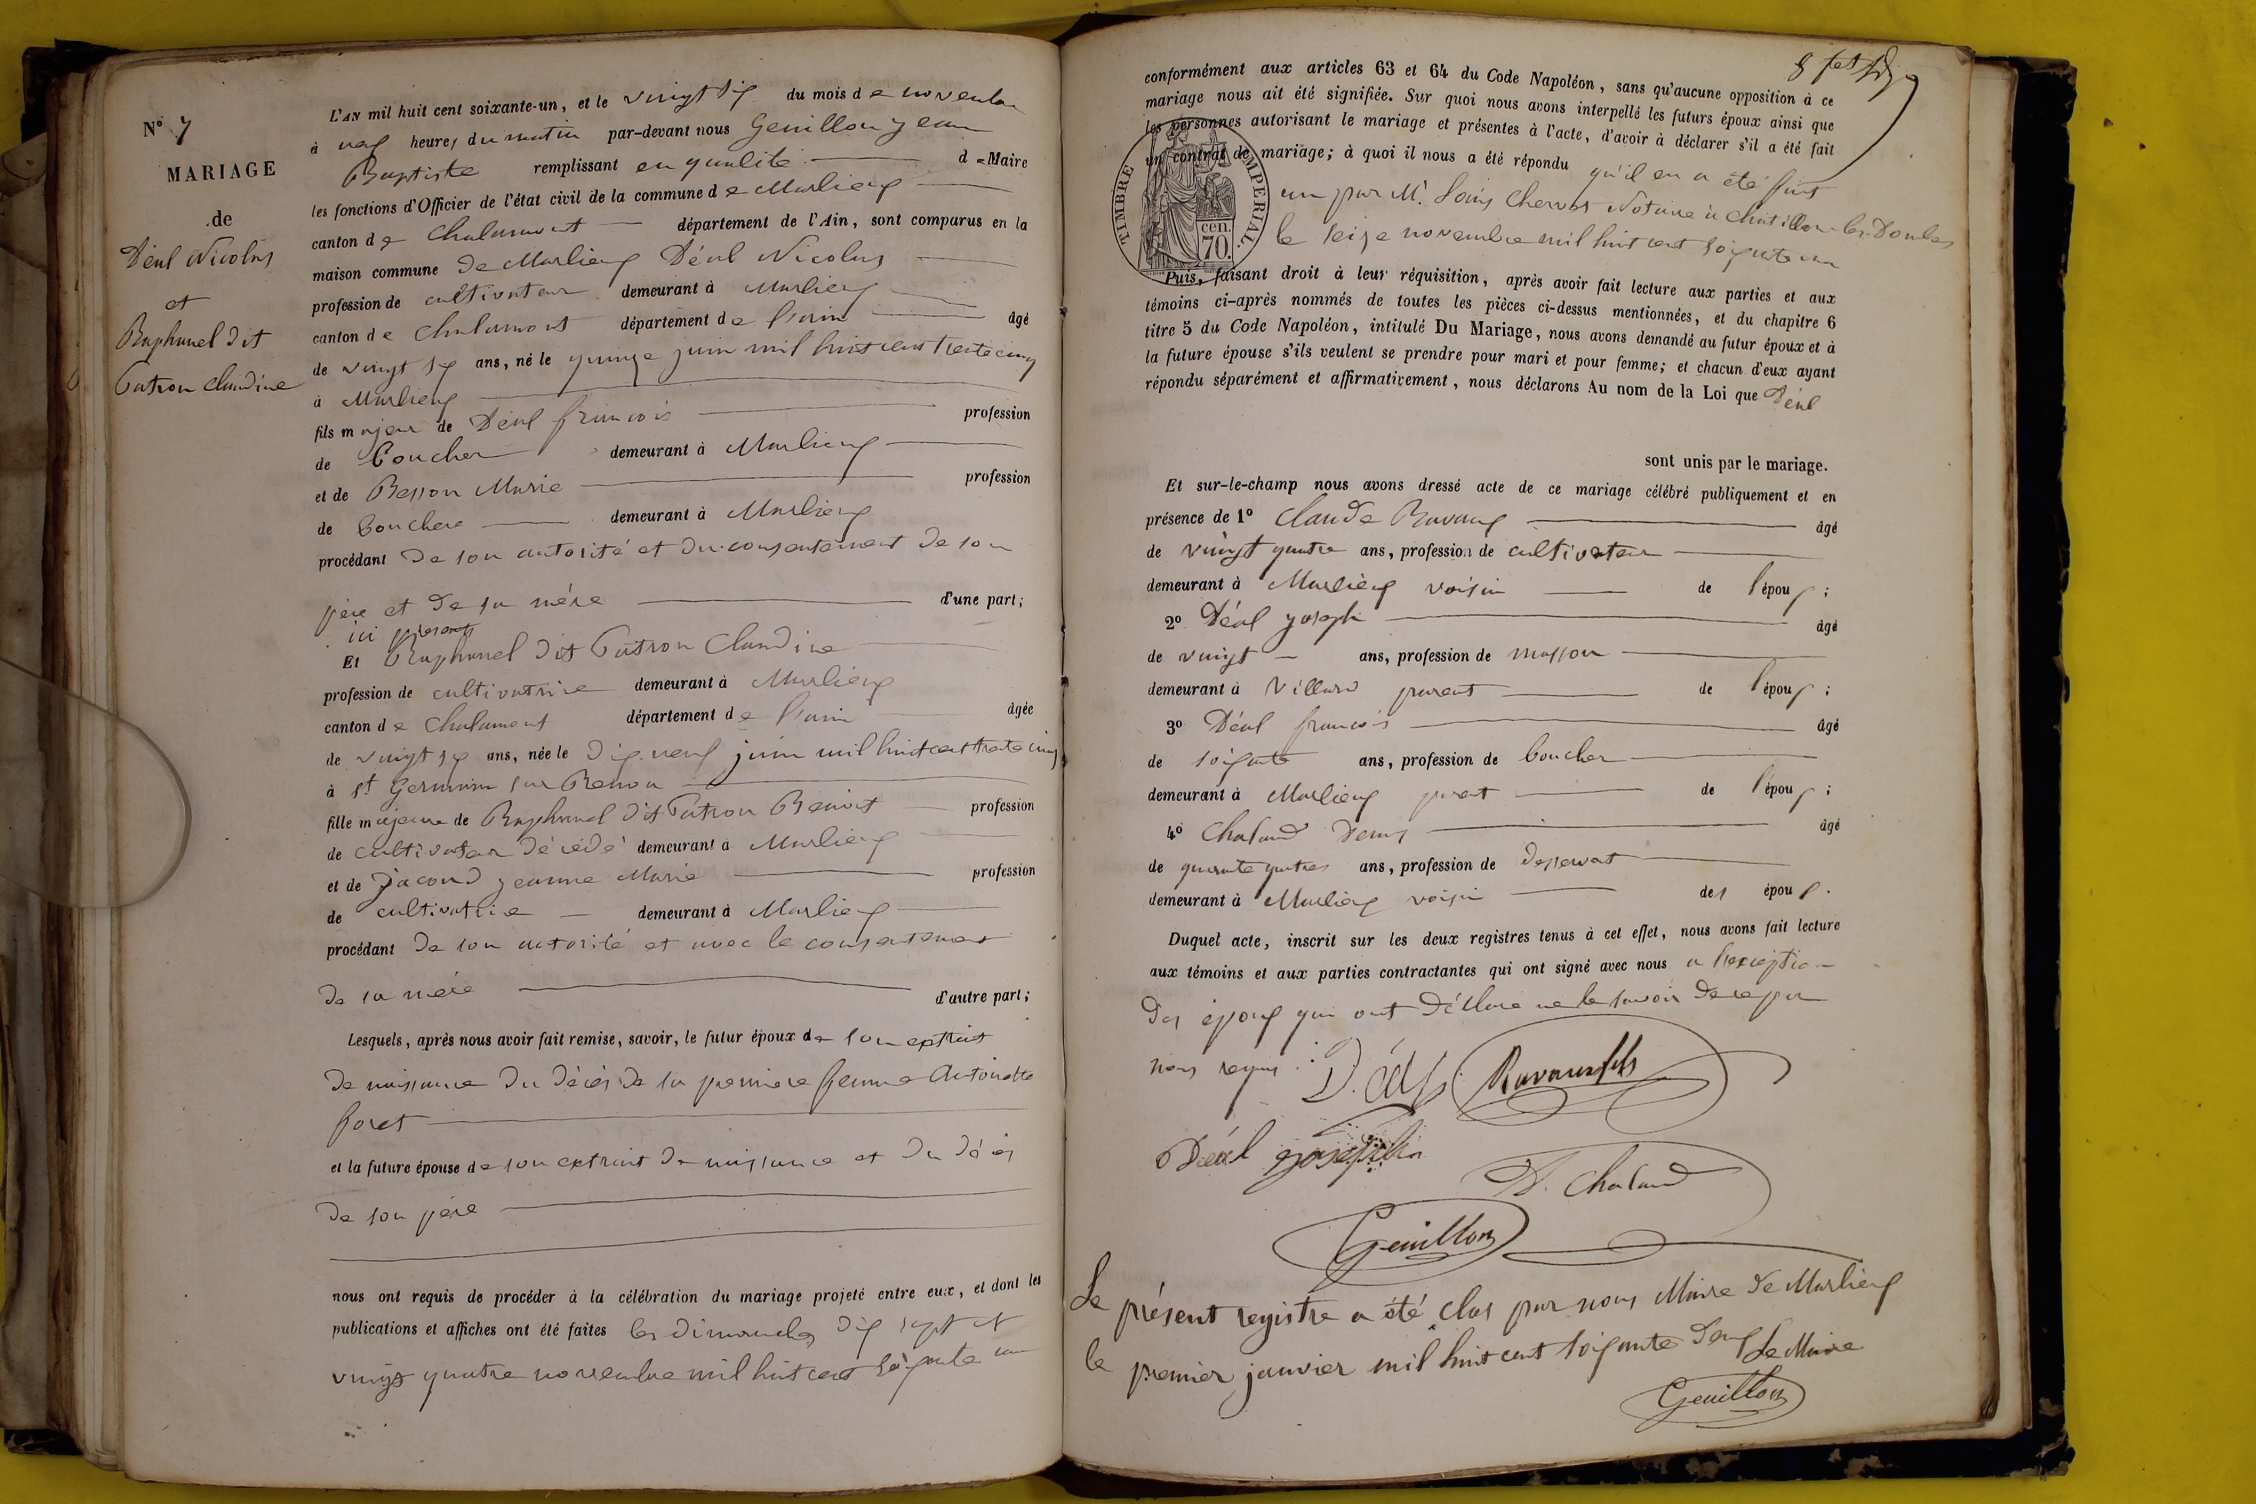 N° 7
MARIAGE
de
Déal Nicolas
et
Raphanel dit
Patron Claudine
L'AN mil huit cent soixante-un, et le vingt six du mois de novembre
à neuf heures du matin par-devant nous Genillon Jean
Baptiste remplissant en qualité de Maire
les fonctions d'Officier de l'état civil de la commune de Marlieux
canton de Chalamont département de l'Ain, sont comparus en la
maison commune de Marlieux Déal Nicolas
profession de cultivateur demeurant à Marlieux
canton de Chalamont département de l'ain âgé
de vingt six ans, né le quinze juin mil huit cent trente cinq
à Marlieux
fils majeur de Déal francois profession
de Boucher demeurant à Marlieux
et de Besson Marie profession
de Bouchere demeurant à Marlieux
procédant de son autorité et du consentement de son
père et de sa mère d'une part;
ici présents
Et Raphanel dit Patron Claudine
profession de cultivatrice demeurant à Marlieux
canton de Chalamont département de l'ain âgée
de vingt six ans, née le dix neuf juin mil huit cent trente cinq
à St Germain sur Renon
fille majeure de Raphanel dit Patron Benoit profession
de cultivateur décédé demeurant à Marlieux
et de Jacond Jeanne Marie profession
de cultivatrice demeurant à Marlieux
procédant de son autorité et avec le consentement
de sa mère d'autre part;
Lesquels, après nous avoir fait remise, savoir, le futur époux de son extrait
de naissance du décès de sa premiere femme Antoinette
foret
et la future épouse de son extrait de naissance et du décès
de son père
nous ont requis de procéder à la célébration du mariage projeté entre eux, et dont les
publications et affiches ont été faites les dimanches dix sept et
vingt quatre novembre mil huit cent soixante un
conformément aux articles 63 et 64 du Code Napoléon, sans qu'aucune opposition à ce
mariage nous ait été signifiée. Sur quoi nous avons interpellé les futurs époux ainsi que
les personnes autorisant le mariage et présentes à l'acte, d'avoir à déclarer s'il a été fait
un contrat de mariage; à quoi il nous a été répondu qu'il en a été fait
un par Mr. Louis Chervet Notaire à Chatillon-les-Dombes
le seize novembre mil huit cent soixante un
TIMBRE IMPERIAL.
cen.
70.
Puis, faisant droit à leur réquisition, après avoir fait lecture aux parties et aux
témoins ci-après nommés de toutes les pièces ci-dessus mentionnées, et du chapitre 6
titre 5 du Code Napoléon, intitulé Du Mariage, nous avons demandé au futur époux et à
la future épouse s'ils veulent se prendre pour mari et pour femme; et chacun d'eux ayant
répondu séparément et affirmativement, nous déclarons Au nom de la Loi que Déal
sont unis par le mariage.
Et sur-le-champ nous avons dressé acte de ce mariage célébré publiquement et en
présence de 1° Claude Ravaux âgé
de vingt quatre ans, profession de cultivateur
demeurant à Marlieux voisin de l'époux;
2° Déal Joseph âgé
de vingt ans, profession de masson
demeurant à Villars parent de l'époux;
3° Déal francois âgé
de soixante ans, profession de boucher
demeurant à Marlieux parent de l'époux;
4° Chaland Denis âgé
de quarante quatre ans, profession de
demeurant à Marlieux voisin des époux.
Duquel acte, inscrit sur les deux registres tenus à cet effet, nous avons fait lecture
aux témoins et aux parties contractantes qui ont signé avec nous a l'exception
des époux qui ont déclaré ne le savoir de ce par
nous requis
Ravaux fils
Déal Joseph
D. Chaland
Genillon
Le présent registre a été clos par nous Maire de Marlieux
le premier janvier mil huit cent soixante deux Le Maire
Genillon